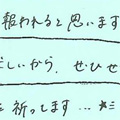 報われると思います
しいから、ぜひせ
祈ってます...